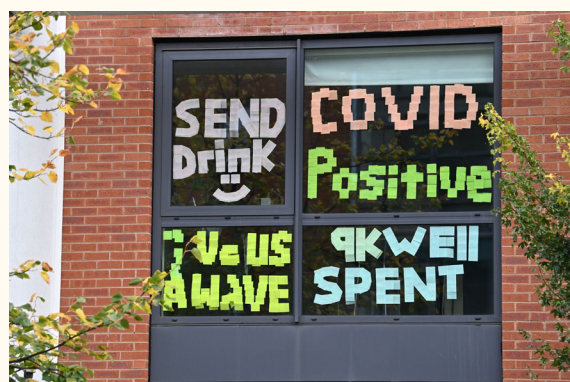 SEND
Drink
COVID
Positive
GiVe US
A WAVE
9K WEll
SPENT